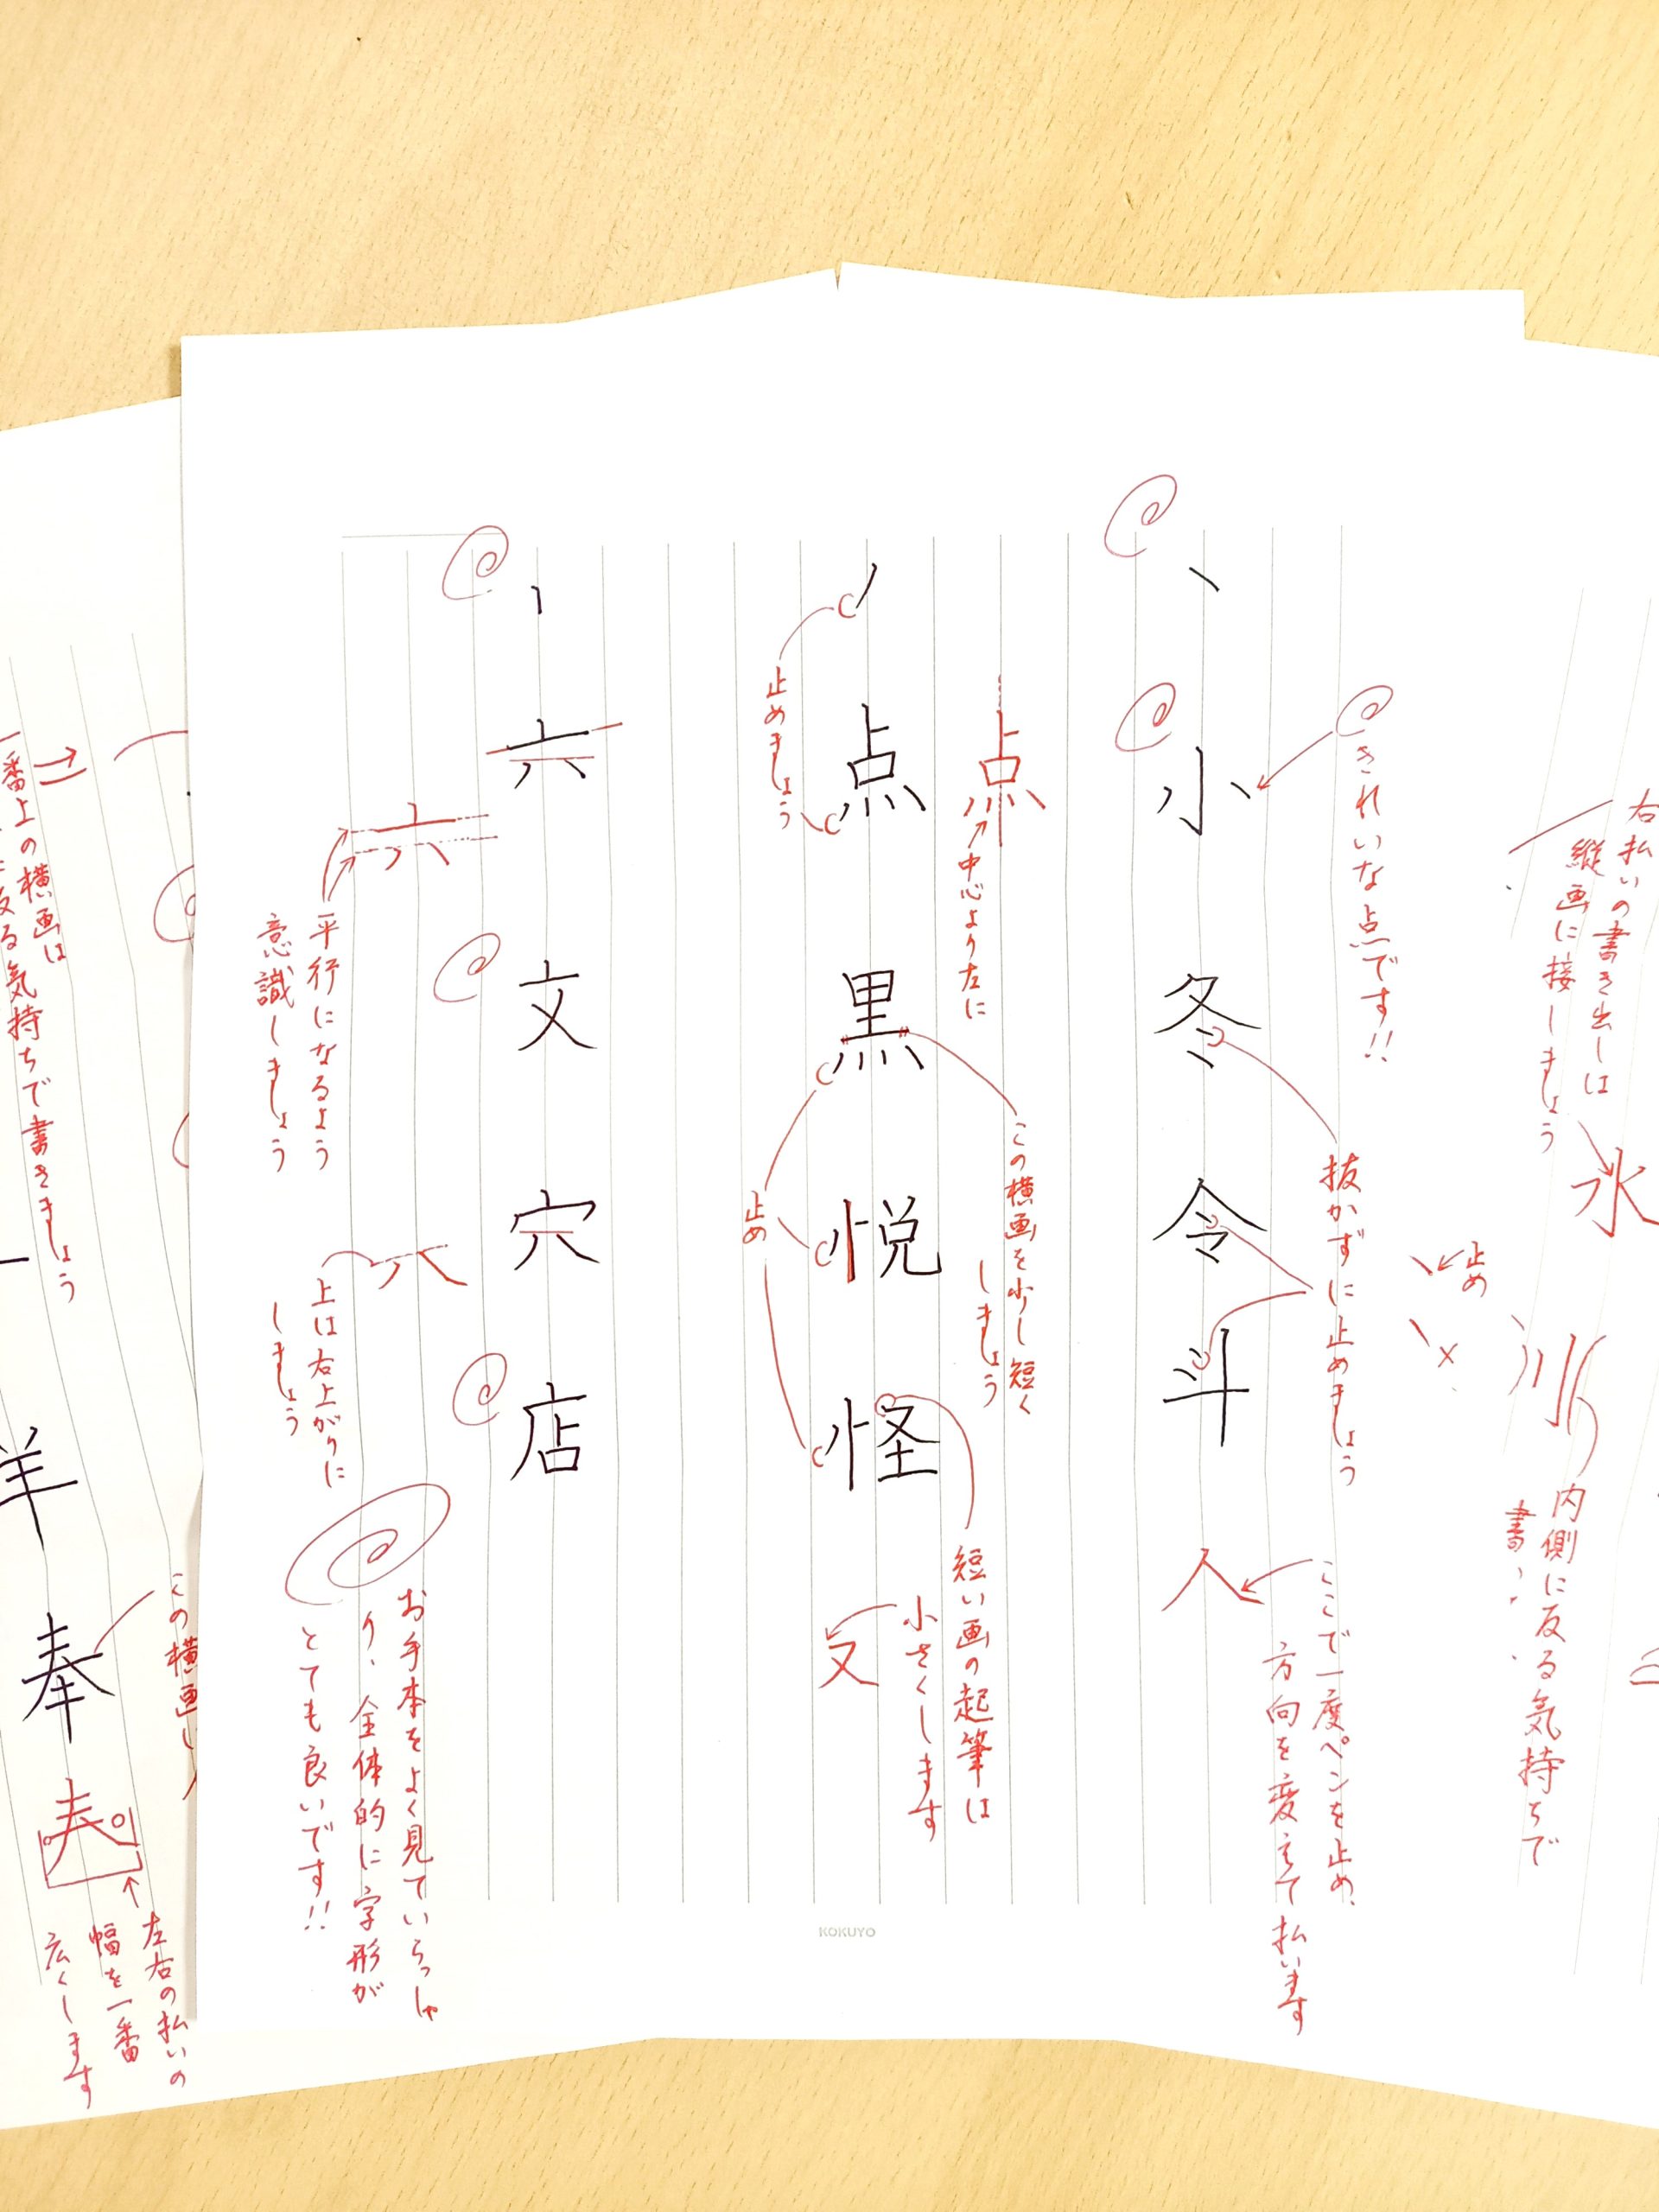 右払いの書き出しは
縦画に接しましょう
氷
止め
川
内側に反る気持ちで
きれいな点です!!
抜かずに止めましょう
ここで一度ペンを止め、
方向を変えて払います
小
冬
令
斗
人
点
中心より左に
この横画を少し短く
しましょう
短い画の起筆は
小さくします
点
黒
悦
怪
又
止めましょう
止め
六
文
穴
店
六
平行になるよう
意識しましょう
上は右上がりに
しましょう
お手本をよく見ていらっしゃ
り、全体的に字形が
とても良いです!!
KOKUYO
この横画
一番上の横画は
反る気持ちで書きましょう
奉
左右の払いの
幅を一番
広くします